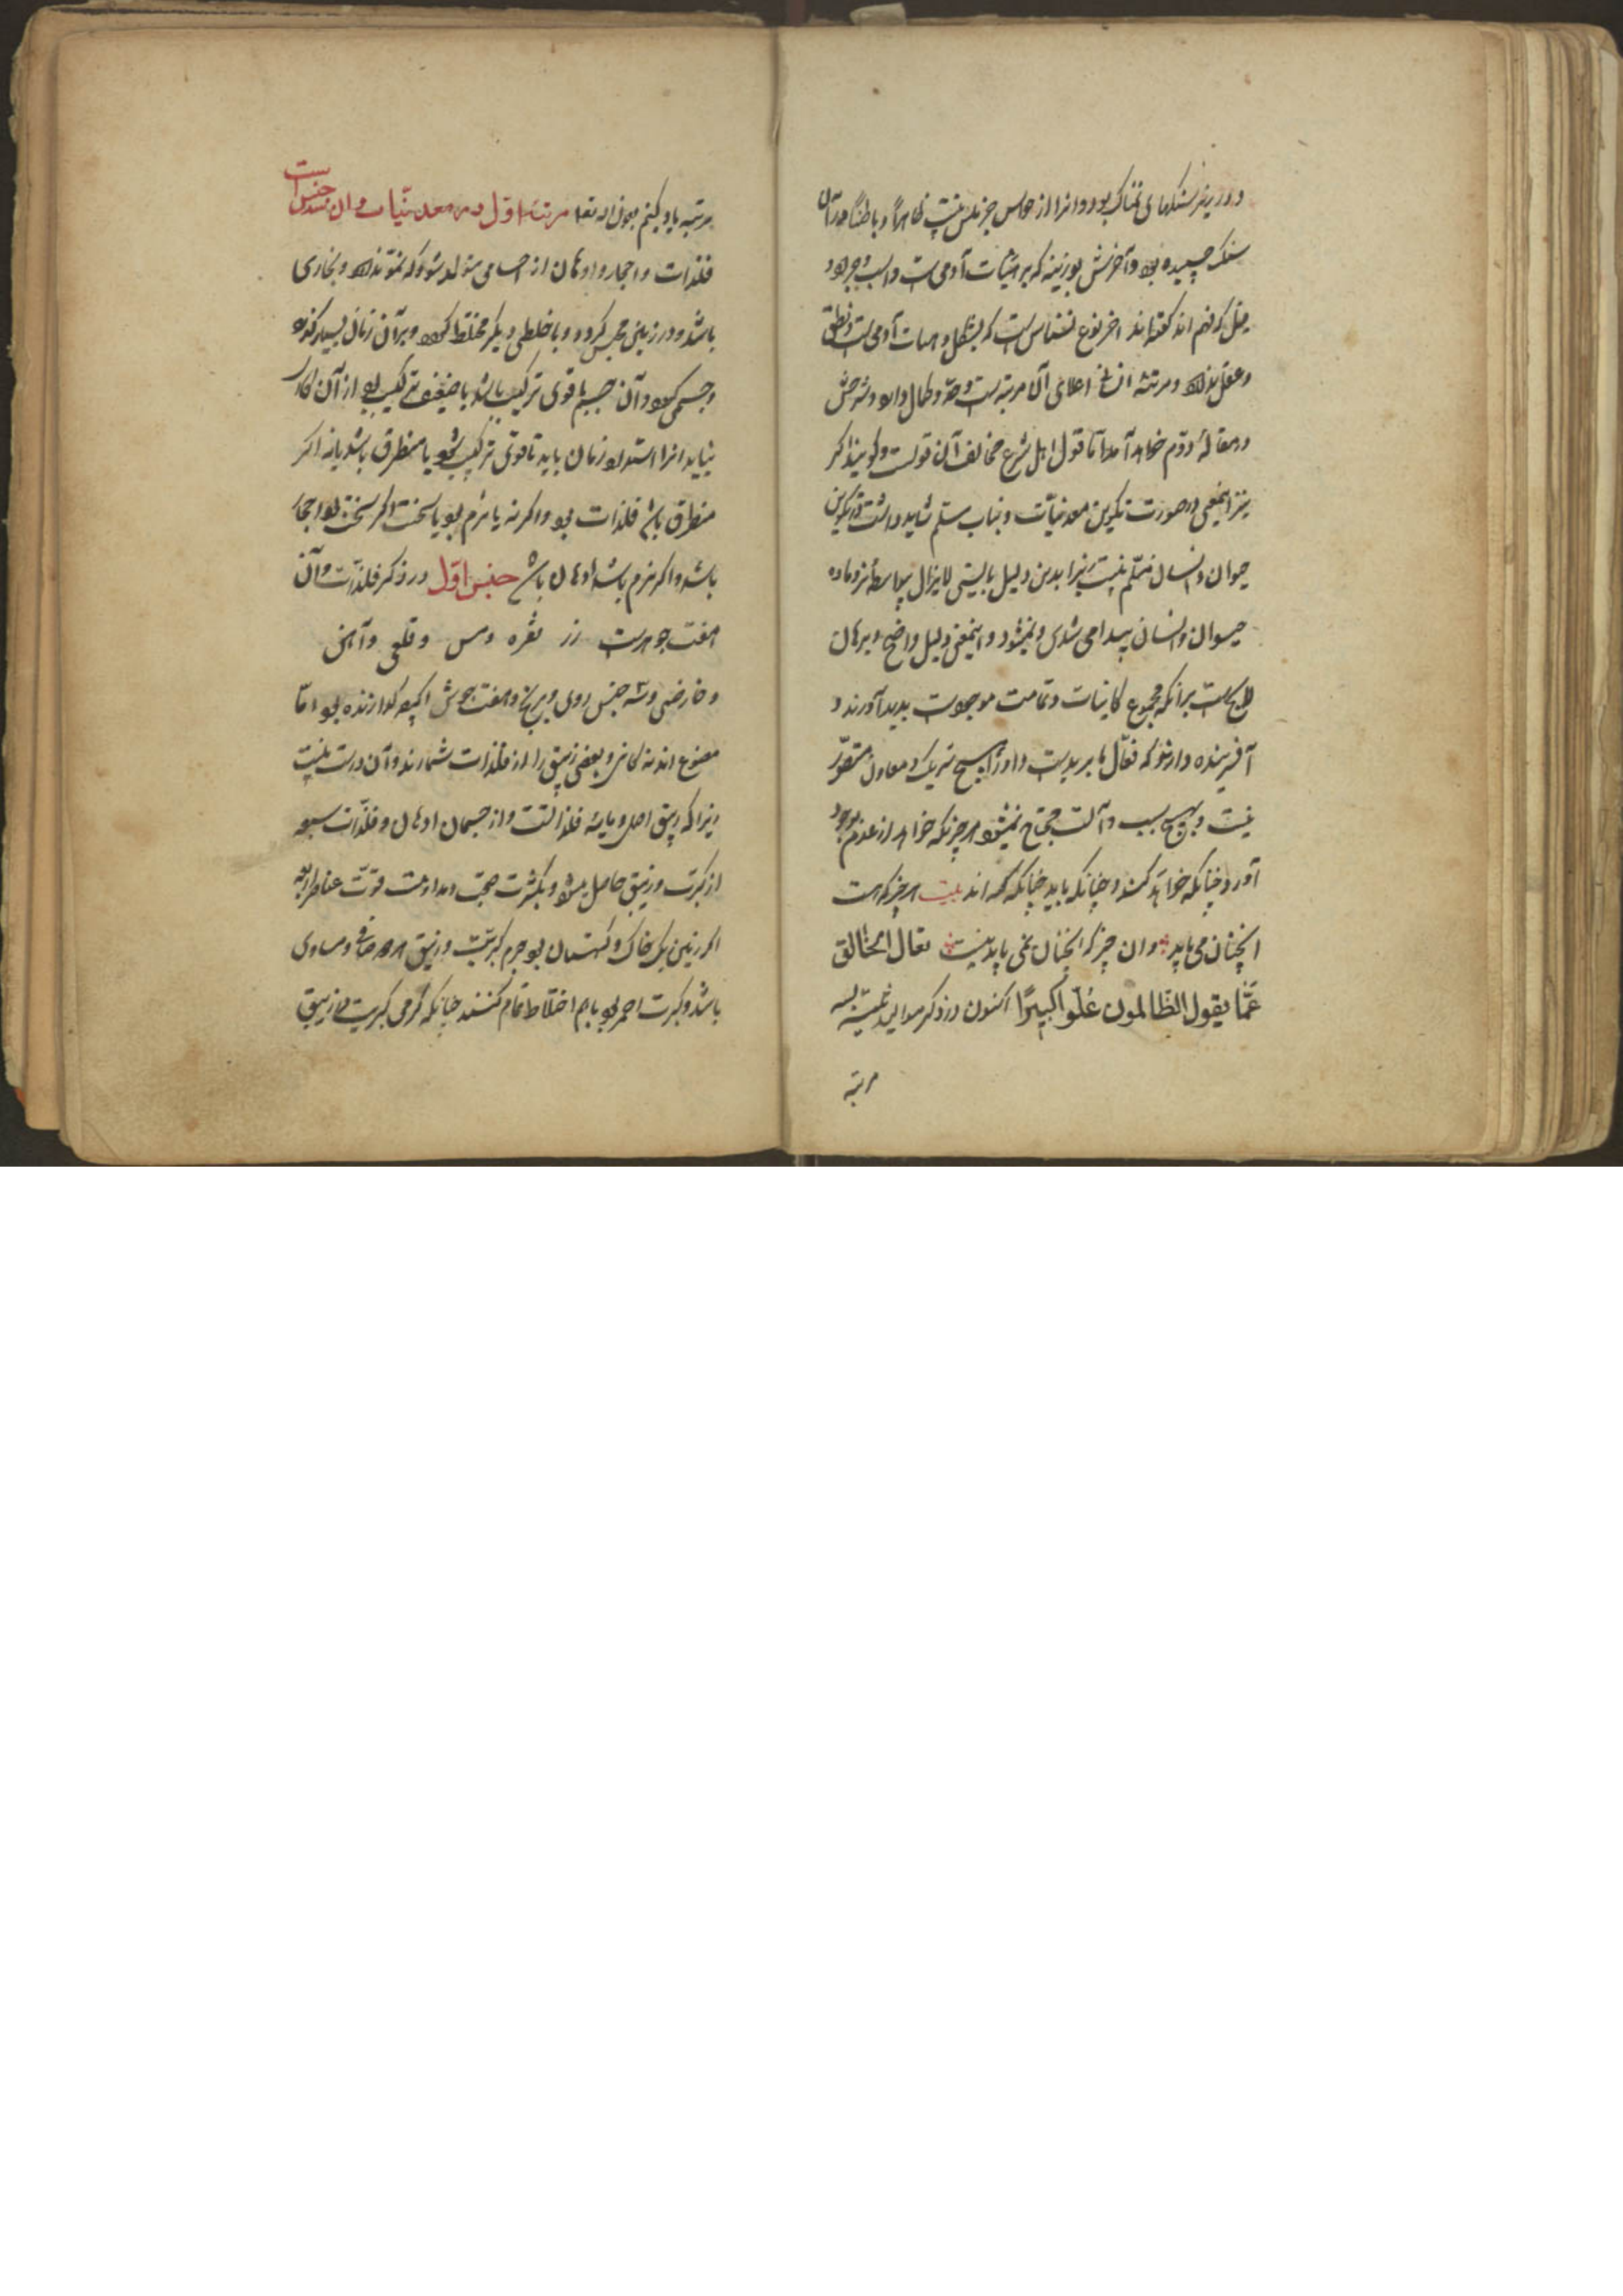 و در زیر سنگهای نمناک بود و او را از حواس جز لمس نیست ظاهراً و باطناً و در آن
سنک چسپیده بود و آخرش بوزینه که بر هیئات آدمی است و اسب
اند گفته‌اند آخر نوع نسناس است که بشکل و هیات آدمی است و نطق
و عقل ندارد و مرتبه انسانی اعلای آن مرتبه است
در مقالهٔ دوّم خواهد آمد امّا قول اهل شرع مخالف آن قولست و گویند اگر
نیز اینمعنی در صورت تکوین معدنیّات و نبات مسلم شاید داشت در تکوین
حیوان و انسان مسلّم نیست زیرا بدین دلیل بایستی لایزال بیواسطهٔ نر و ماده
حیوان و انسان پیدا می شدی و نمیشود و اینمعنی دلیل واضح و برهان
لایح است برآنکه مجموع کاینات و تمامت موجودات پدید آورنده و
آفریننده دارند که فعّال ما یریدست و او را هیچ شریک و معاون متصوّر
نیست و بهیچ سبب و آلت محتاج نمیشود هر چیز که خواهد از عدم بوجود
آورد چنانکه خواهد کند و چنانکه باید چنانکه گفته اند بیت هر چیز که هست
آنچنان می باید وان چیز که آنچنان نمی باید نیست تعال الخالق
عَمَّا یقول الظالمون عُلُوّاً کبیرًا اکنون در ذکر موالید ثلثه بسه
مرتبه
مرتبه یاد کنیم بعون الله تعا مرتبهٔ اوّل در معدنیّات و آن سه جنس است
فلذات و احجار و ادهان از اجسامی متولد شود که نموّ ندارد و بخاری
باشد و در زمین محبس گردد و با خلطی دیگر مختلط گردد و بر آن زمان بسیار گذرد
و جسمی گردد و آن جسم یا قوی ترکیب باشد یا ضعیف ترکیب بود از آن کار
نیاید انرا امتداد زمان باید تا قوی ترکیب شود یا منطرق باشد یا نه اکر
منطرق باشد فلذات بود و اکر نه یا نرم بود یا سخت اکر سخت بود احجار
باشد و اکر نرم باشد ادهان باشد جنس اوّل در ذکر فلذّات و آن
هفت جوهرست زر نقره و مس و قلعی و آهن
و خارصنی و سه جنس روی و برنج و هفت جوش اکرچه کدازنده بود امّا
مصنوع اند نه کانی و بعضی زیبق را از فلذات شمارند و آن درست نیست
زیرا که زیبق اصل و مایه فلذاتست و از جسمان ادهان و فلذّات سبعه
از کبریت و زیبق حاصل میشود و بکثرت صحبت و مداومت قوّت عناصر اربعه
اکر زمین پاک خاک و کهستان بود جرم کبریت و زیبق هر دو صافی و مساوی
باشد و کبریت احمر بود با هم اختلاط تمام کنند چنانکه گرمی کبریت مر زیبق